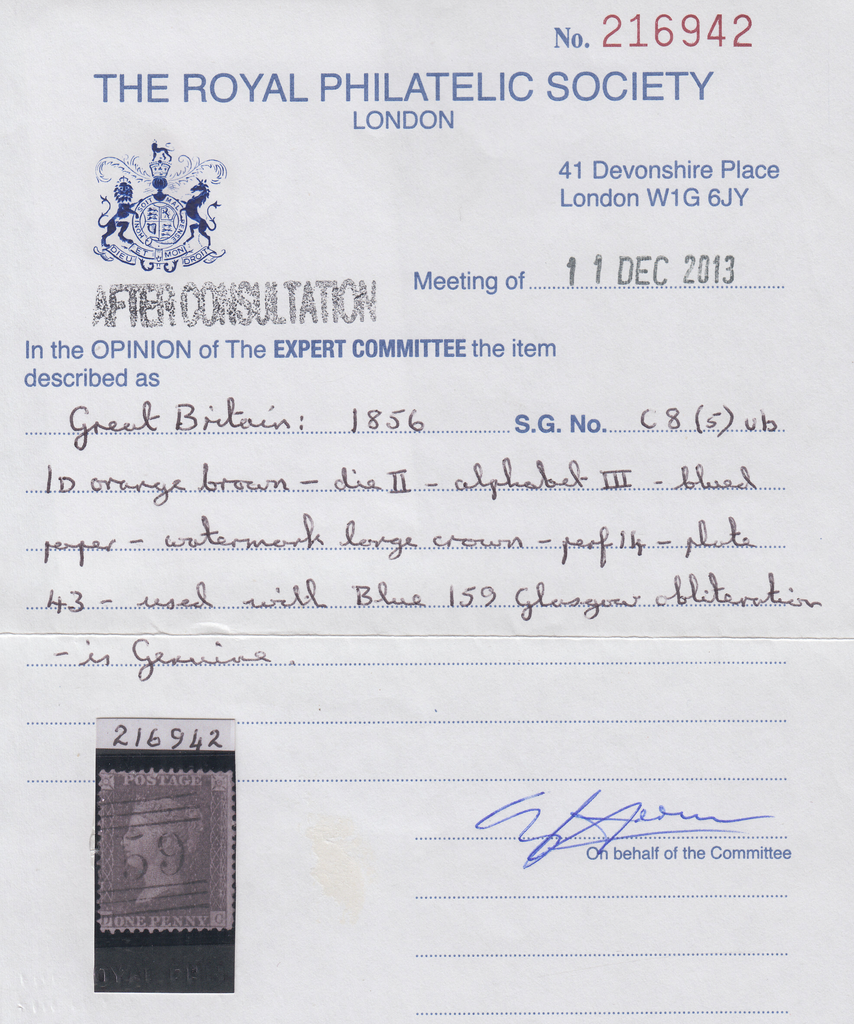 No. 216942
THE ROYAL PHILATELIC SOCIETY
LONDON
41 Devonshire Place
London W1G 6JY
DIEU ET MON DROIT
Meeting of 11 DEC 2013
AFTER CONSULTATION
In the OPINION of The EXPERT COMMITTEE the item
described as
Great Britain: 1856 S.G. No. C8(5) ub
1D orange brown – die II – alphabet III – blued
paper – watermark large crown – perf 14 – plate
43 – used with Blue 159 Glasgow obliteration
– is Genuine.
216942
POSTAGE
59
ONE PENNY
On behalf of the Committee